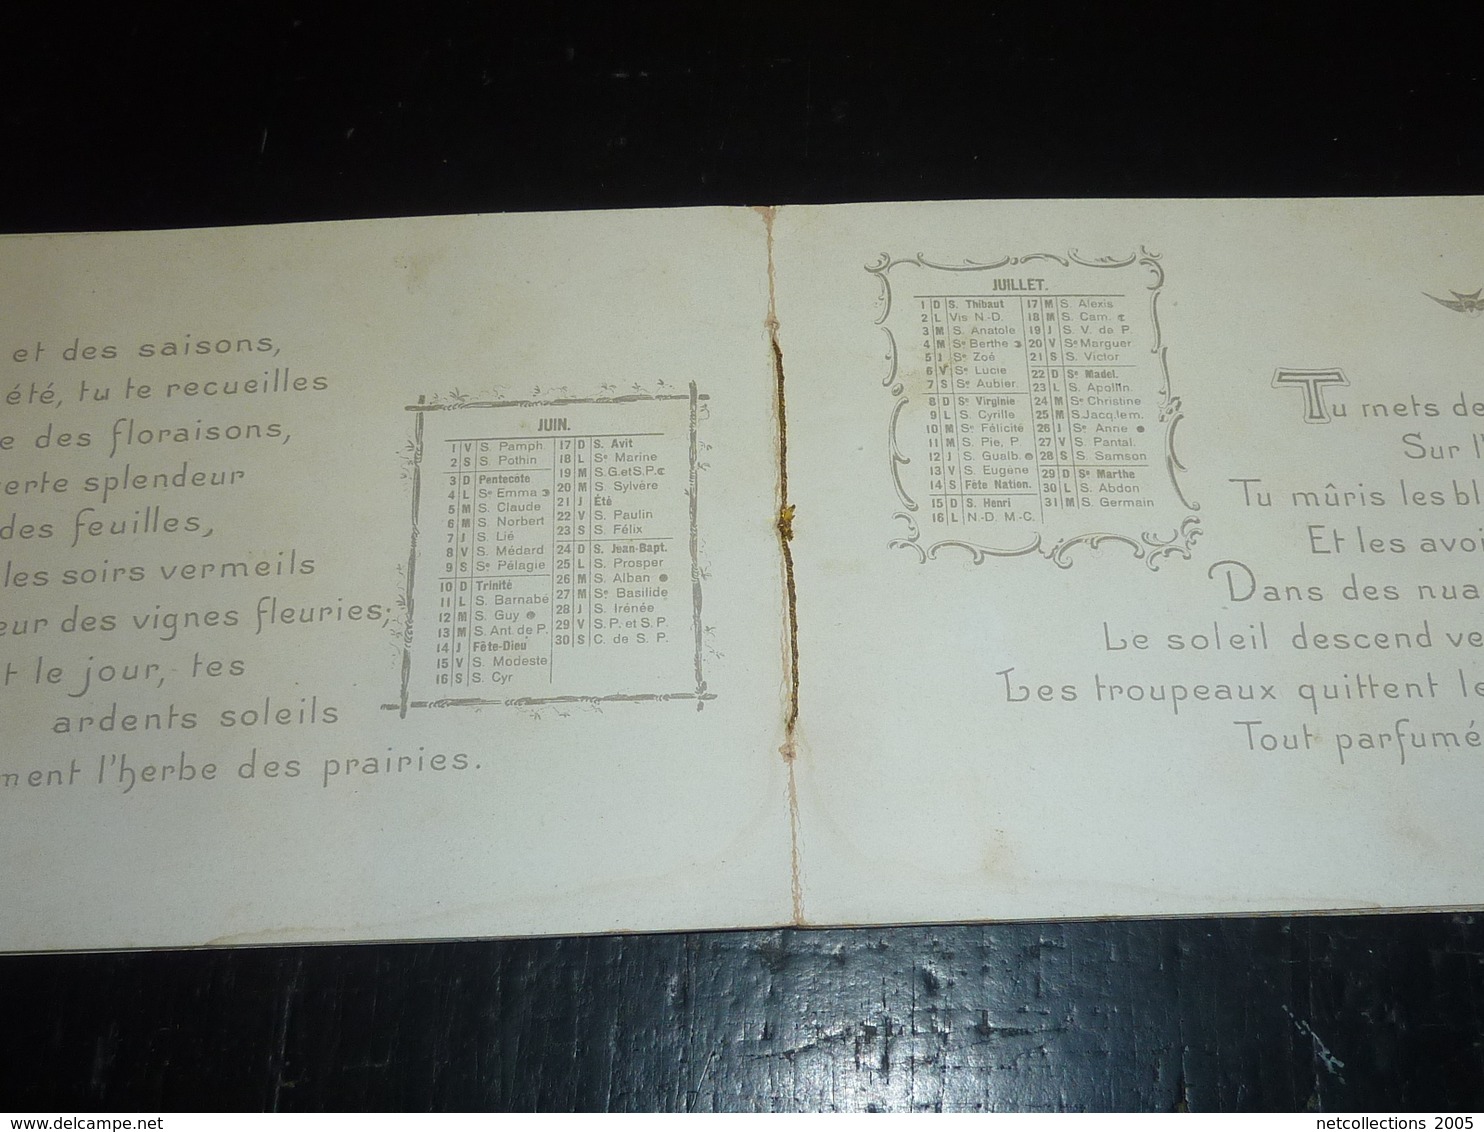 et des saisons,
été, tu te recueilles
e des floraisons,
erte splendeur
des feuilles,
les soirs vermeils
eur des vignes fleuries;
t le jour, tes
ardents soleils
ment l'herbe des prairies.
JUIN.
1 V S. Pamph.
2 S S. Pothin
3 D Pentecôte
4 L Se Emma
5 M S. Claude
6 M S. Norbert
7 J S. Lié
8 V S. Médard
9 S Se Pélagie
10 D Trinité
11 L S. Barnabé
12 M S. Guy
13 M S. Ant. de P.
14 J Fête-Dieu
15 V S. Modeste
16 S S. Cyr
17 D S. Avit
18 L Se Marine
19 M S.G.etS.P.
20 M S. Sylvère
21 J Été
22 V S. Paulin
23 S S. Félix
24 D S. Jean-Bapt.
25 L S. Prosper
26 M S. Alban
27 M Se Basilide
28 J S. Irénée
29 V S.P. et S.P.
30 S C. de S. P.
JUILLET.
1 D S. Thibaut
2 L Vis N.-D.
3 M S. Anatole
4 M Se Berthe
5 J Se Zoé
6 V Se Lucie
7 S Se Aubier.
8 D Se Virginie
9 L S. Cyrille
10 M Se Félicité
11 M S. Pie, P
12 J S. Gualb.
13 V S. Eugène
14 S Fête Nation.
15 D S. Henri
16 L N.-D. M.-C.
17 M S. Alexis
18 M S. Cam.
19 J S. V. de P.
20 V Se Marguer
21 S S. Victor
22 D Se Madel.
23 L S. Apollin.
24 M Se Christine
25 M S.Jacq.lem.
26 J Se Anne
27 V S. Pantal.
28 S S. Samson
29 D Se Marthe
30 L S. Abdon
31 M S. Germain
Tu mets de
Sur l'
Tu mûris les bl
Et les avoi
Dans des nua
Le soleil descend ve
Les troupeaux quittent le
Tout parfumé
delcampe.net
netcollections 2005